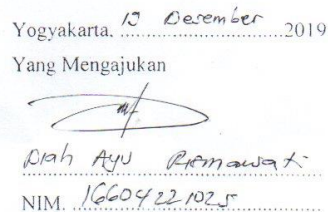 Yogyakarta, 19 Desember 2019
Yang Mengajukan
Diah Ayu Rismawati
NIM. 16604221025